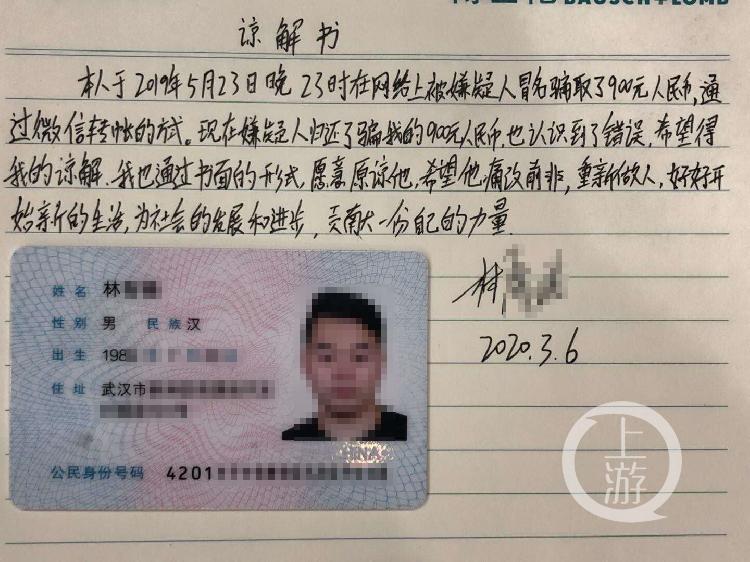 BAUSCH+LOMB
谅解书
本人于2019年5月23日晚23时在网络上被嫌疑人冒名骗取了900元人民币,通
过微信转帐的方式。现在嫌疑人归还了骗我的900元人民币,也认识到了错误,希望得
我的谅解.我也通过书面的形式,愿意原谅他,希望他痛改前非,重新做人,好好开
始新的生活,为社会的发展和进步,贡献一份自己的力量.
林
2020.3.6
姓名 林
性别 男 民族 汉
出生 198
住址 武汉市
公民身份号码 4201
上游